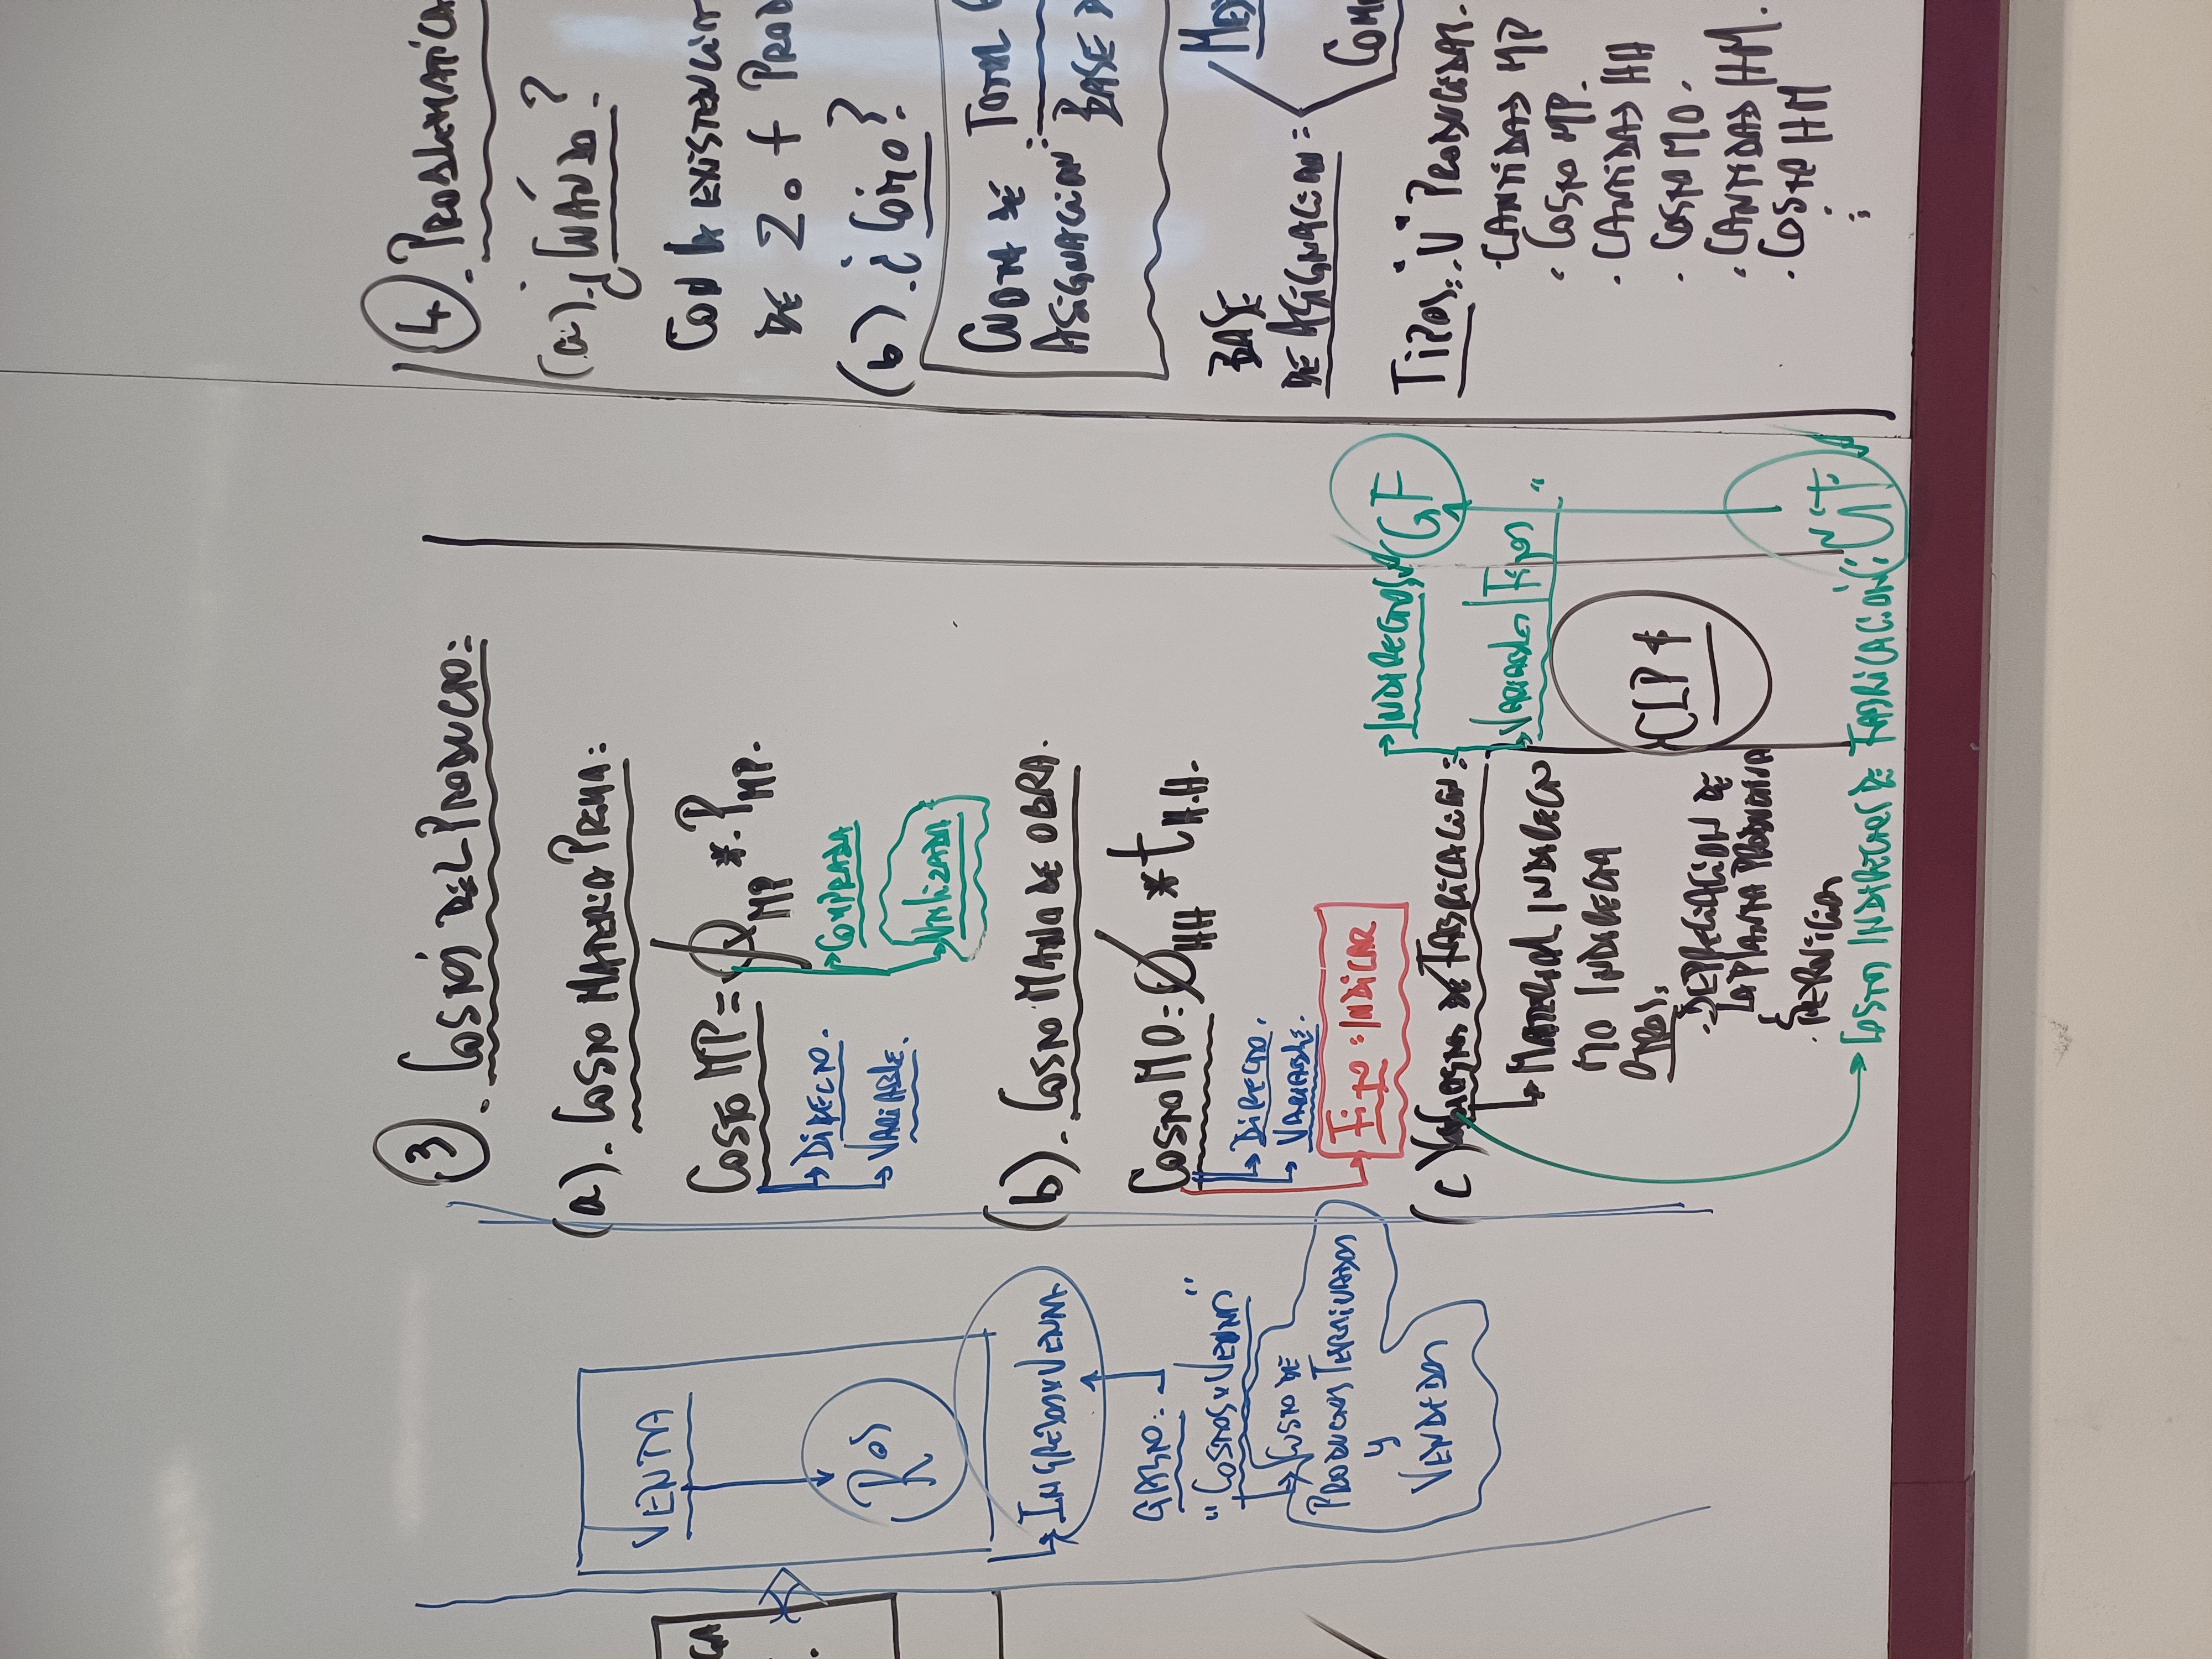 GA
VENTA
Ros
INGRESOSxVENTA
GASTO:
"COSTOSxVENTA"
COSTO DE
PRODUCTOS TERMINADOS
Y
VENDIDOS
3. COSTOS DEL PRODUCTO:
(a). COSTO MATERIA PRIMA:
COSTO MP = Q MP * PMP.
DIRECTO.
VARIABLE.
COMPRADA
UTILIZADA
(b). COSTO MANO DE OBRA.
COSTO MO: Q HH * t H.H.
DIRECTO.
VARIABLE.
FIJO: INDICAR
(c) GASTOS DE FABRICACION:
INDIRECTOS
GF
VARIABLES | FIJOS
MATERIAL INDIRECTO
MO INDIRECTA
OTROS.
CLP $
. DEPRECIACION DE
LA PLANTA PRODUCTIVA
.
COSTOS INDIRECTOS DE FABRICACION: CIF
4. PROBLEMATICA
(a). ¿CUÁNDO?
CON LA EXISTENCIA
DE 2 o + PROD
(b). ¿COMO?
CUOTA DE ASIGNACION: TOTAL
BASE D
BASE
DE ASIGNACION =
MED
COM
TIPOS: . "U" PRODUCIDAS.
. CANTIDAD MP
. COSTO MP.
. CANTIDAD HH
. COSTO MO.
. CANTIDAD HM.
. COSTO HM